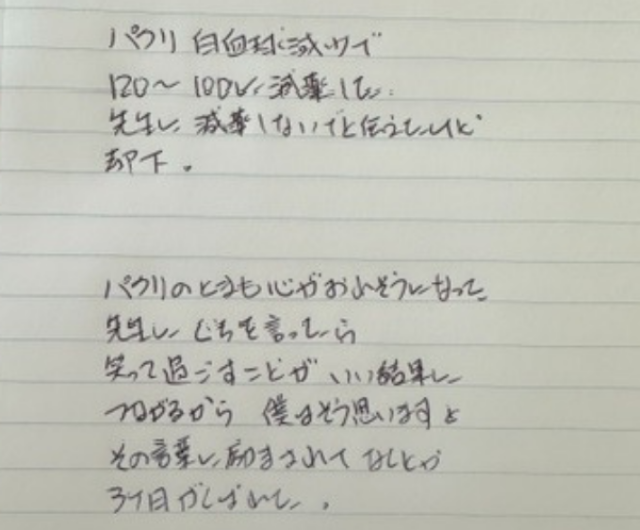 パクリ 白血球減少で
120〜100に減薬した.
先生に 減薬しないでと伝えたけど
却下。
パクリのときも心がおれそうになって
先生に ぐちを言ってたら
笑って過ごすことが いい結果に
つながるから 僕はそう思いますと
その言葉に励まされて なんとか
3ヶ月がんばれた。